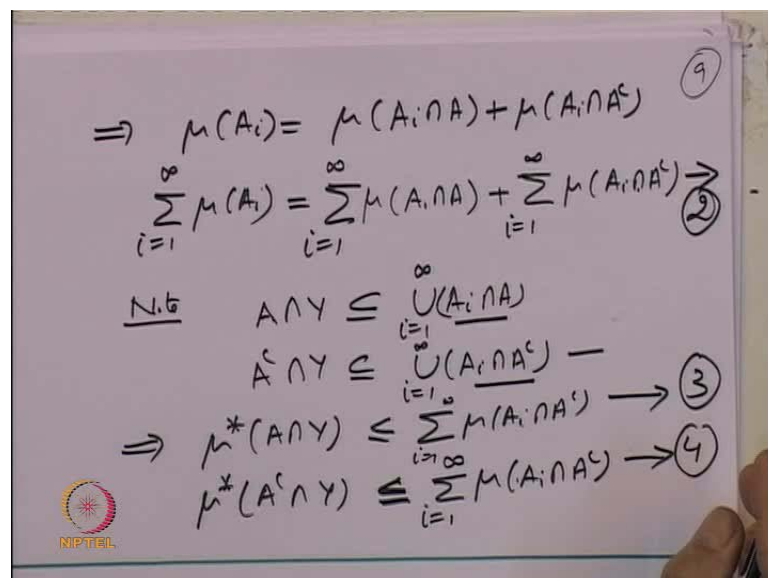 9
⇒ μ(Ai) = μ(Ai∩A) + μ(Ai∩Aᶜ)
∞ ∑ i=1 μ(Ai) = ∞ ∑ i=1 μ(Ai∩A) + ∞ ∑ i=1 μ(Ai∩Aᶜ) → 2
Note A∩Y ⊆ ∞ ∪ i=1 (Ai∩A)
Aᶜ∩Y ⊆ ∞ ∪ i=1 (Ai∩Aᶜ) —
⇒ μ*(A∩Y) ≤ ∞ ∑ i=1 μ(Ai∩Aᶜ) → 3
μ*(Aᶜ∩Y) ≤ ∞ ∑ i=1 μ(Ai∩Aᶜ) → 4
NPTEL